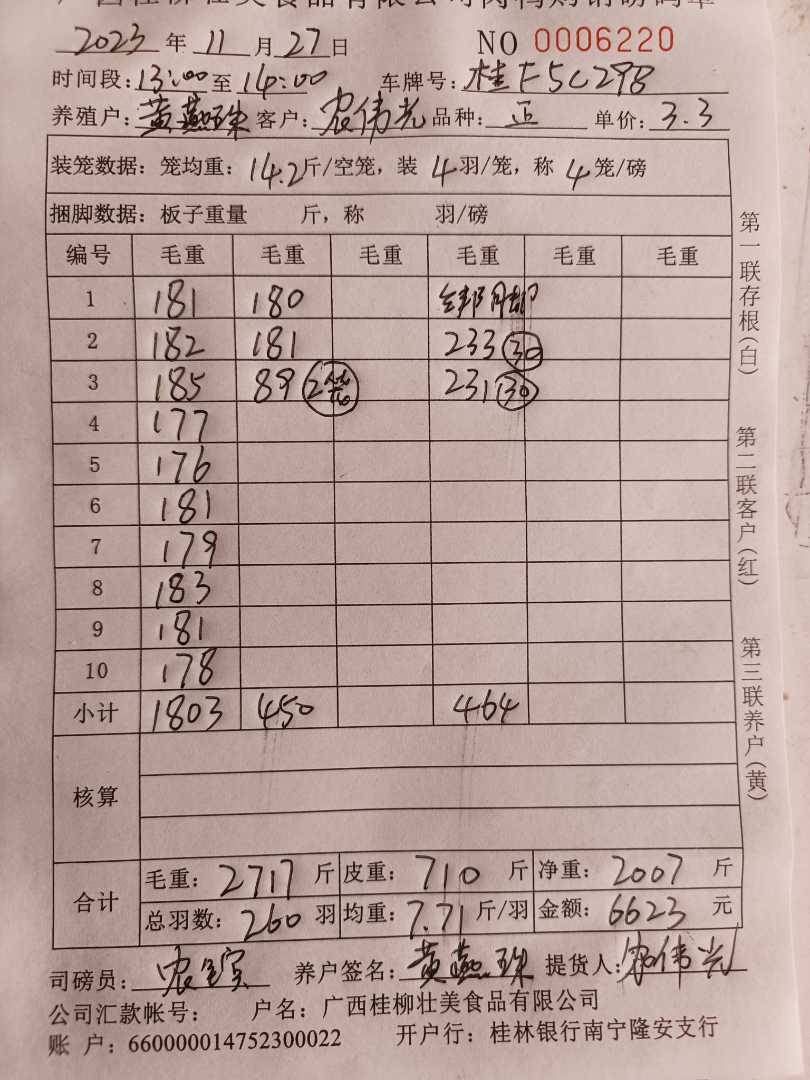 广西桂柳壮美食品有限公司肉鸭购销磅码单
2023年11月27日 NO 0006220
时间段:13:00至14:00 车牌号:桂F5C298
养殖户:黄燕珠 客户:农伟光 品种:正 单价:3.3
装笼数据:笼均重:14.2斤/空笼,装4羽/笼,称4笼/磅
捆脚数据:板子重量 斤,称 羽/磅
编号 毛重 毛重 毛重 毛重 毛重 毛重
1 181 180
2 182 181 233 30
3 185 89 2笼 231 30
4 177
5 176
6 181
7 179
8 183
9 181
10 178
小计 1803 450 464
核算
合计 毛重:2717斤 皮重:710斤 净重:2007斤
总羽数:260羽 均重:7.71斤/羽 金额:6623元
司磅员: 养户签名:黄燕珠 提货人:农伟光
公司汇款帐号: 户名:广西桂柳壮美食品有限公司
账 户:660000014752300022 开户行:桂林银行南宁隆安支行
第一联存根(白)
第二联客户(红)
第三联养户(黄)